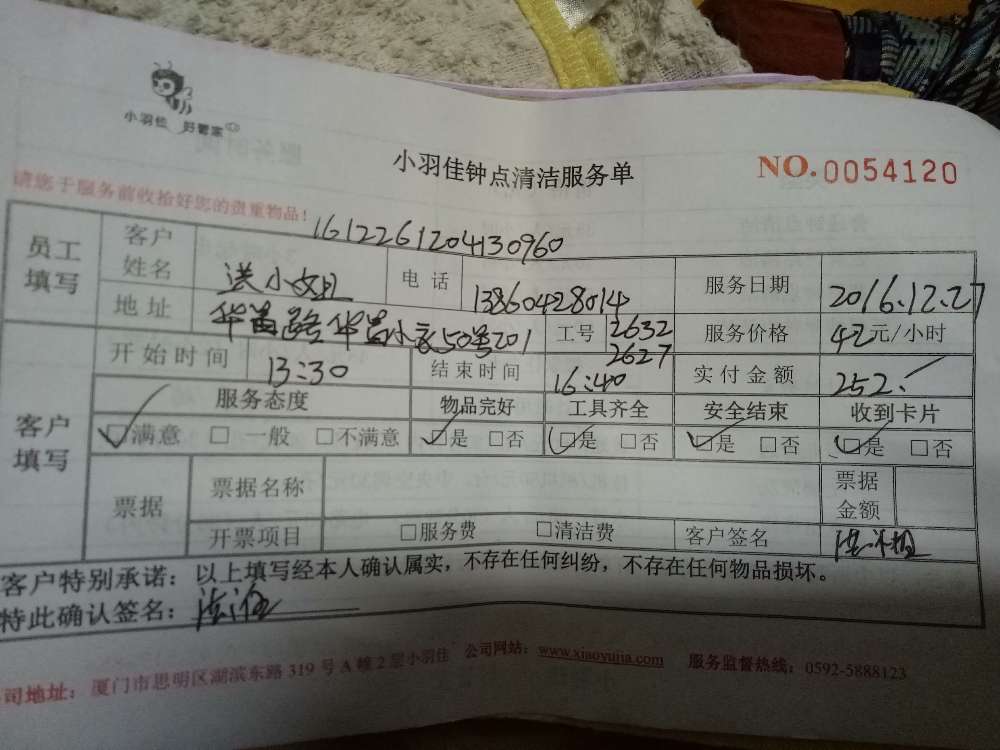 小羽佳 好管家
小羽佳钟点清洁服务单
NO.0054120
请您于服务前收拾好您的贵重物品！
1612261204130960
员工填写 客户姓名 小姐 电话 13860428014 服务日期 2016.12.27
地址 华昌路华昌小区50号201 工号 2632 2627 服务价格 42元/小时
客户填写 开始时间 13:30 结束时间 16:40 实付金额 252.
服务态度 物品完好 工具齐全 安全结束 收到卡片
☑满意 □一般 □不满意 ☑是 □否 ☑是 □否 ☑是 □否 ☑是 □否
票据 票据名称 票据金额
开票项目 □服务费 □清洁费 客户签名
客户特别承诺：以上填写经本人确认属实，不存在任何纠纷，不存在任何物品损坏。
特此确认签名：
司地址：厦门市思明区湖滨东路319号A幢2层小羽佳 公司网站：www.xiaoyujia.com 服务监督热线：0592-5888123